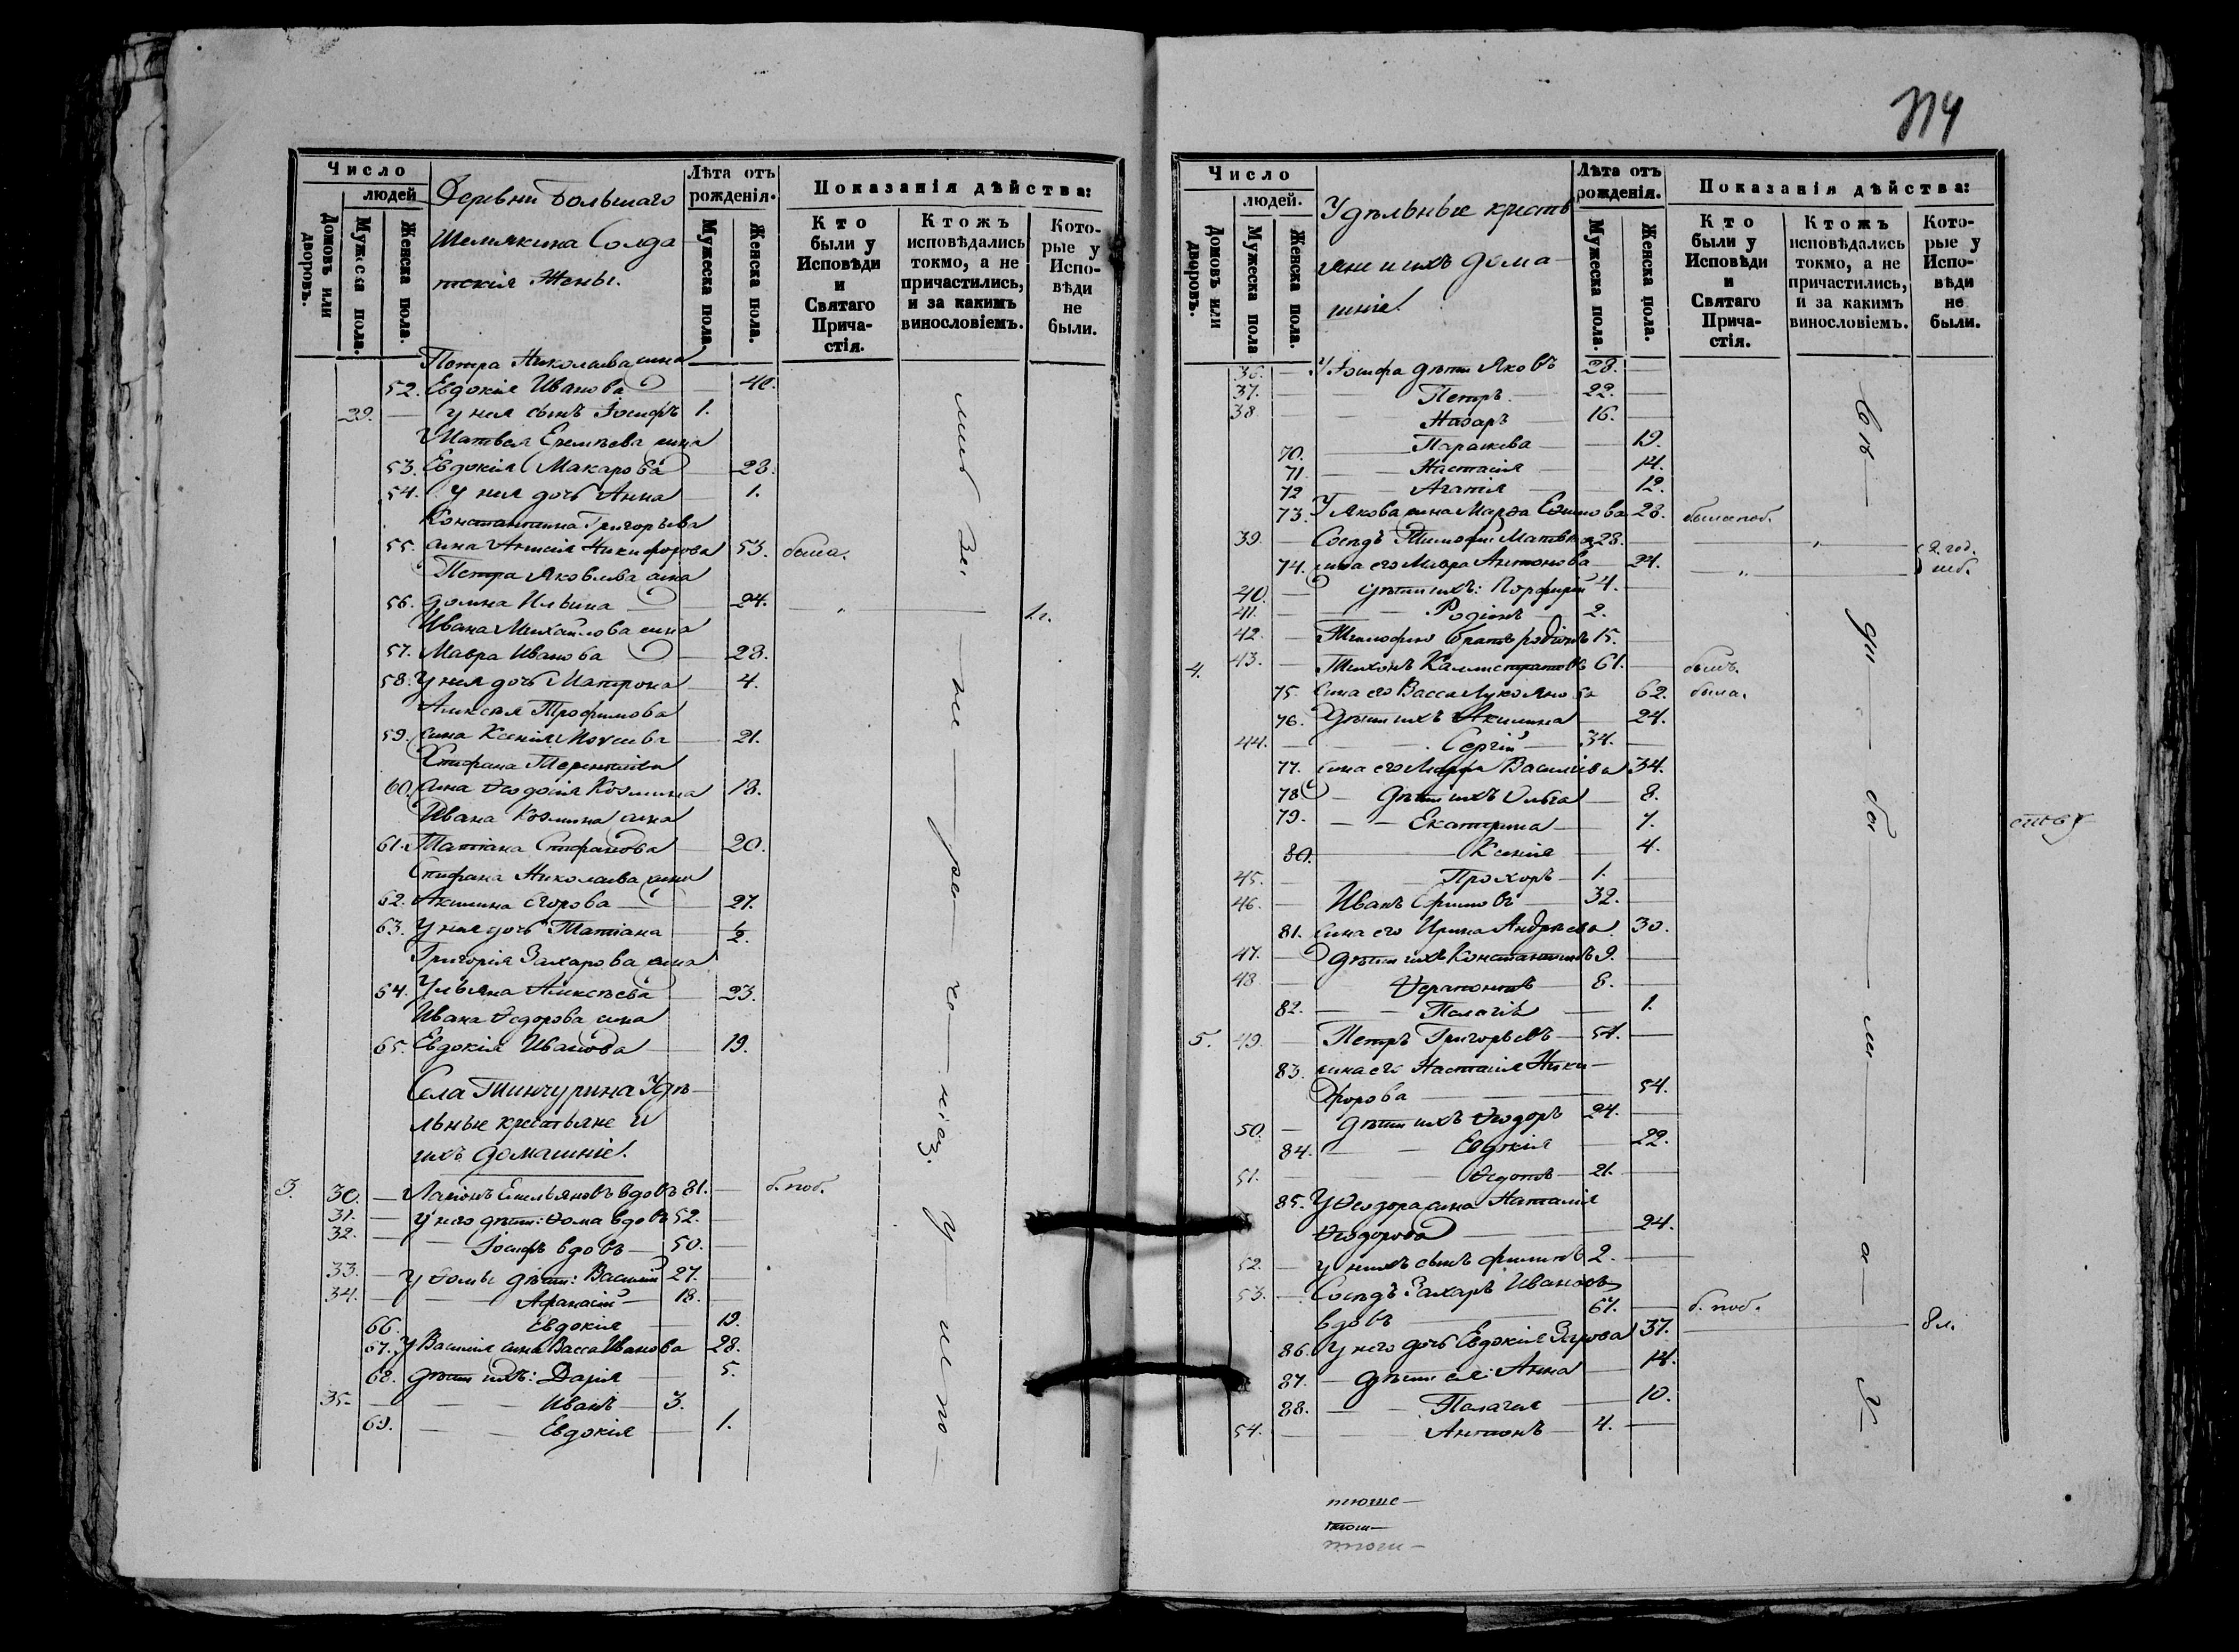 Число
людей
Домовъ или дворовъ.
Мужеска пола.
Женска пола.
Деревни Большаго
Шемякина Солда
тскія Жены.
Лѣта отъ рожденія.
Мужеска пола.
Женска пола.
Показанія дѣйства:
Кто были у Исповѣди и Святаго Причастія.
Ктожъ исповѣдались токмо, а не причастились, и за какимъ винословіемъ.
Которые у Исповѣди не были.
Петра Николаева жена
52. Евдокія Иванова — 40.
29. — у нея сынъ Іосифъ 1.
Матвея Еремѣева жена
53. Евдокія Макарова — 28.
54. у нея дочь Анна — 1.
Константина Григорьева
55. жена Анисія Никифорова 53. была.
Петра Яковлева жена
56. Домна Ильина — 24. — „ — 1.г.
Ивана Михайлова жена
57. Мавра Иванова — 28.
58. У нея дочь Матрона — 4.
Алексѣя Трофимова
59. жена Ксенія Моѵсеева — 21.
Стефана Терентіева
60. жена Ѳеодосія Козмина 18.
Ивана Козмина жена
61. Татіана Стефанова — 20.
Стефана Николаева жена
62. Акилина Егорова — 27.
63. У нея дочь Татіана — 1/2.
Григорія Захарова жена
54. Ульяна Алексѣева — 23.
Ивана Ѳедорова жена
65. Евдокія Иванова — 19.
Села Тинчурина Удѣ—
льные крестьяне и
ихъ домашніе.
3. 30. — Ларіонъ Емельяновъ вдовъ 81. — б. поб.
31. — у него дѣти: Ѳома вдовъ 52. —
32. — — Іосифъ вдовъ — 50. —
33. — У Ѳомы дѣти: Василій 27. —
34. — — Афанасій — 18. —
66. Евдокія — 19.
67. У Василія жена Васса Иванова 28.
68. дѣти ихъ: Дарія — 5.
35. — — — Иванъ — 3.
69. — — Евдокія — 1.
Число
людей.
Домовъ или дворовъ.
Мужеска пола
Женска пола.
Удѣльные кресть
яне и ихъ дома—
шніе.
Лѣта отъ рожденія.
Мужеска пола.
Женска пола.
Показанія дѣйства:
Кто были у Исповѣди и Святаго Причастія.
Ктожъ исповѣдались токмо, а не причастились, и за какимъ винословіемъ.
Которые у Исповѣди не были.
36. — У Іосифа дѣти Яковъ 28. —
37. — — Петръ — 22. —
38 Назаръ — 16. —
70. — Параскева — 19.
71. — Настасія — 14.
72 — Агапія — 12.
73. У Якова жена Марѳа Ефимова 28. была поб.
39. — Сосѣдъ Тимофей Матвѣевъ 28. — „ — 2. год.
74. жена его Мавра Антонова — 24. — „ —
40. — дѣти ихъ: Порфирій 4. —
41. — Родіонъ — 2.
42. — Тимофея братъ Родіонъ 15. —
4. 43. — Тихонъ Каллистратовъ 61. — былъ.
75. жена его Васса Лукоянова 62. была.
76. Дѣти ихъ Акилина — 24.
44. — — Сергій — 34. —
77. жена его Марѳа Василіева 34.
78 — дѣти ихъ Ольга — 8.
79. — — Екатерина — 7.
80. — Ксенія — 4.
45. — — Прохоръ — 1. —
46. — Иванъ Ефимовъ — 32. —
81. жена его Ирина Андрѣева 30.
47. — Дѣти ихъ Константинъ 9. —
48. — Ѳерапонтъ — 8. —
82. — — Пелагія — 1.
5. 49. — Петръ Григорьевъ — 54. —
83. жена его Настасія Ники—
форова — 54.
50. — дѣти ихъ Ѳеодоръ 24. —
84. — — Евдокія — 22.
51. — — Ѳедотъ — 21. —
85. У Ѳеодора жена Наталія
Ѳеодорова — 24.
52. — у нихъ сынъ Филипъ 2. —
53. — Сосѣдъ Захаръ Ивановъ
вдовъ — 67. — б. поб.
86. У него дочь Евдокія 37. — 8 л.
87. — дѣти ея: Анна — 14.
88. — — Пелагея — 10.
54. — — Антонъ — 4. —